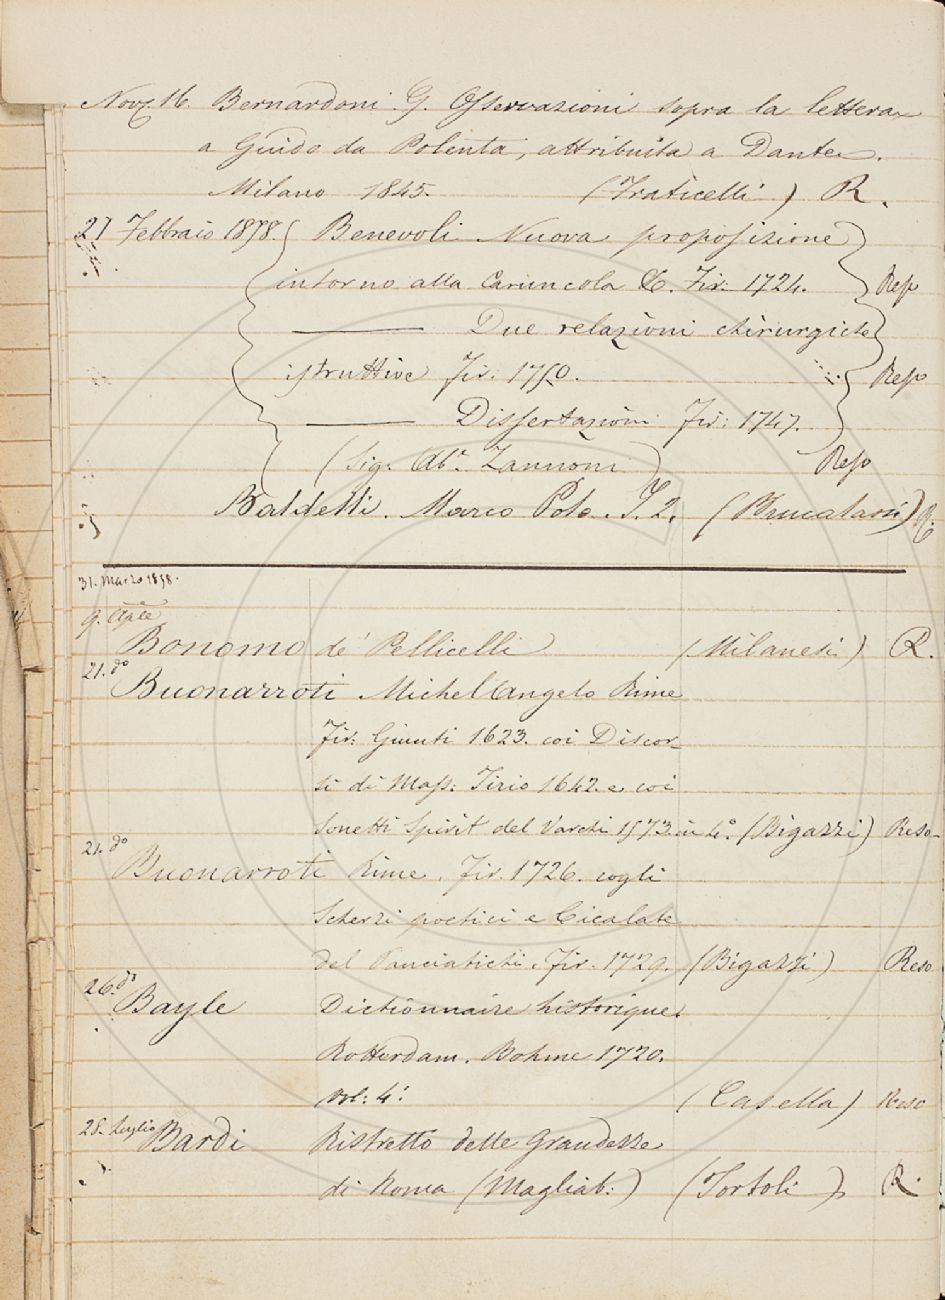 Nov. 16. Bernardoni G. Osservazioni sopra la lettera
a Guido da Polenta, attribuita a Dante.
Milano 1845. (Fraticelli) R.
27 Febbraio 1858. Benevoli Nuova proposizione
intorno alla Caruncola &. Fir: 1724. Reso
——— Due relazioni chirurgiche
istruttive Fir: 1750. Reso
——— Dissertazioni Fir: 1747.
(Sig. Ab.e Zannoni) Reso
Baldelli. Marco Polo. T. 2. (Brucalassi) R.
31. Marzo 1858.
9. Aple
Bonomo de' Pellicelli (Milanesi) R.
21. do
Buonarroti Michelangelo Rime
Fir: Giunti 1623. coi Discor-
si di Mass: Tirio 1642. e coi
Sonetti Spirit del Varchi 1573. in 4.° (Bigazzi) Reso
21. do
Buonarroti Rime. Fir. 1726. cogli
Scherzi poetici e Cicalate
del Panciatichi. Fir. 1729. (Bigazzi) Reso
26. do
Bayle Dictionnaire historique.
Rotterdam. Bohme 1720.
vol: 4: (Casella) Reso
28. Luglio Bardi Ristretto delle Grandezze
di Roma (Magliab:) (Tortoli) R.